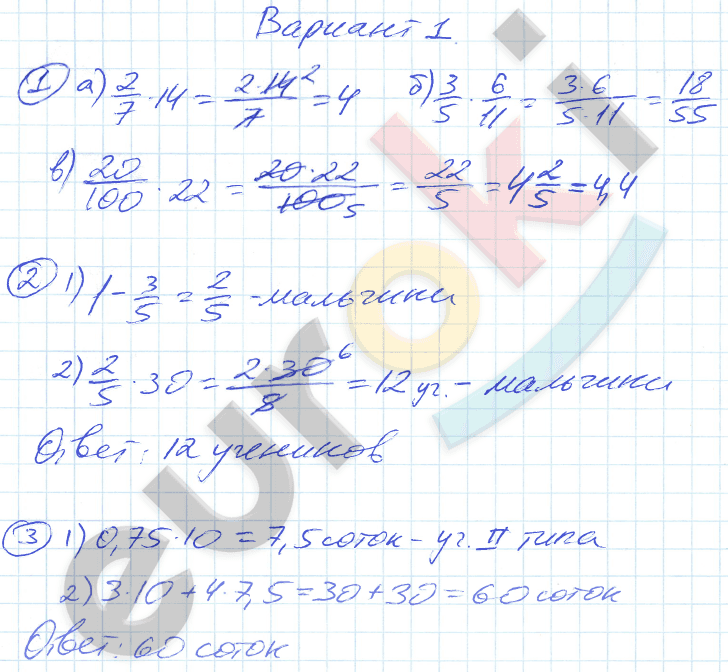 Вариант 1.
① а) 2/7 · 14 = 2·14²/7 = 4 б) 3/5 · 6/11 = 3·6/5·11 = 18/55
в) 20/100 · 22 = 20·22/100 5 = 22/5 = 4 2/5 = 4,4
② 1) 1 - 3/5 = 2/5 - мальчики
2) 2/5 · 30 = 2·30⁶/5 = 12 уч. - мальчики
Ответ: 12 учеников
③ 1) 0,75·10 = 7,5 соток - уч. II типа
2) 3·10 + 4·7,5 = 30 + 30 = 60 соток
Ответ: 60 соток
euroki